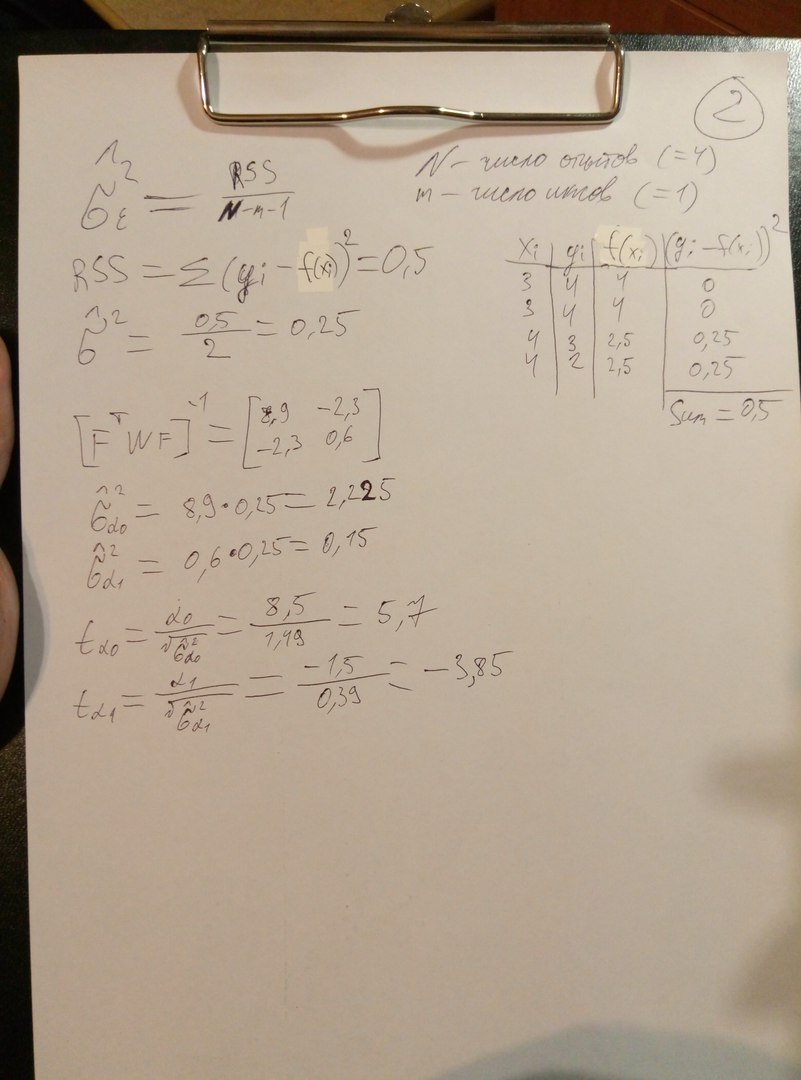 2
σ̂²ε = RSS / N-m-1
N – число опытов (=4)
m – число иксов (=1)
RSS = Σ(yi – f(xi))² = 0,5
σ̂² = 0,5 / 2 = 0,25
xi | yi | f(xi) | (yi – f(xi))²
3 | 4 | 4 | 0
3 | 4 | 4 | 0
4 | 3 | 2,5 | 0,25
4 | 2 | 2,5 | 0,25
Sum = 0,5
[FᵀWF]⁻¹ = [8,9 -2,3
-2,3 0,6]
σ̂²α0 = 8,9·0,25 = 2,225
σ̂²α1 = 0,6·0,25 = 0,15
tα0 = α0 / √σ̂²α0 = 8,5 / 1,49 = 5,7
tα1 = α1 / √σ̂²α1 = -1,5 / 0,39 = -3,85